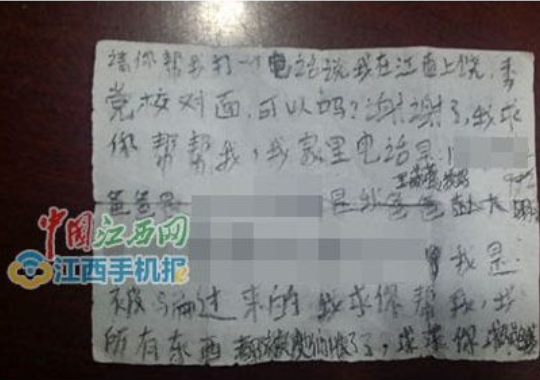 请你帮我打一个电话说我在江西上饶,
党校对面,可以吗?谢谢了,我求
你帮帮我,我家里电话是:1
爸爸是
是
中国江西网
江西手机报
我是
被骗过来的 我求你帮我,我
所有东西都被 了,求求你